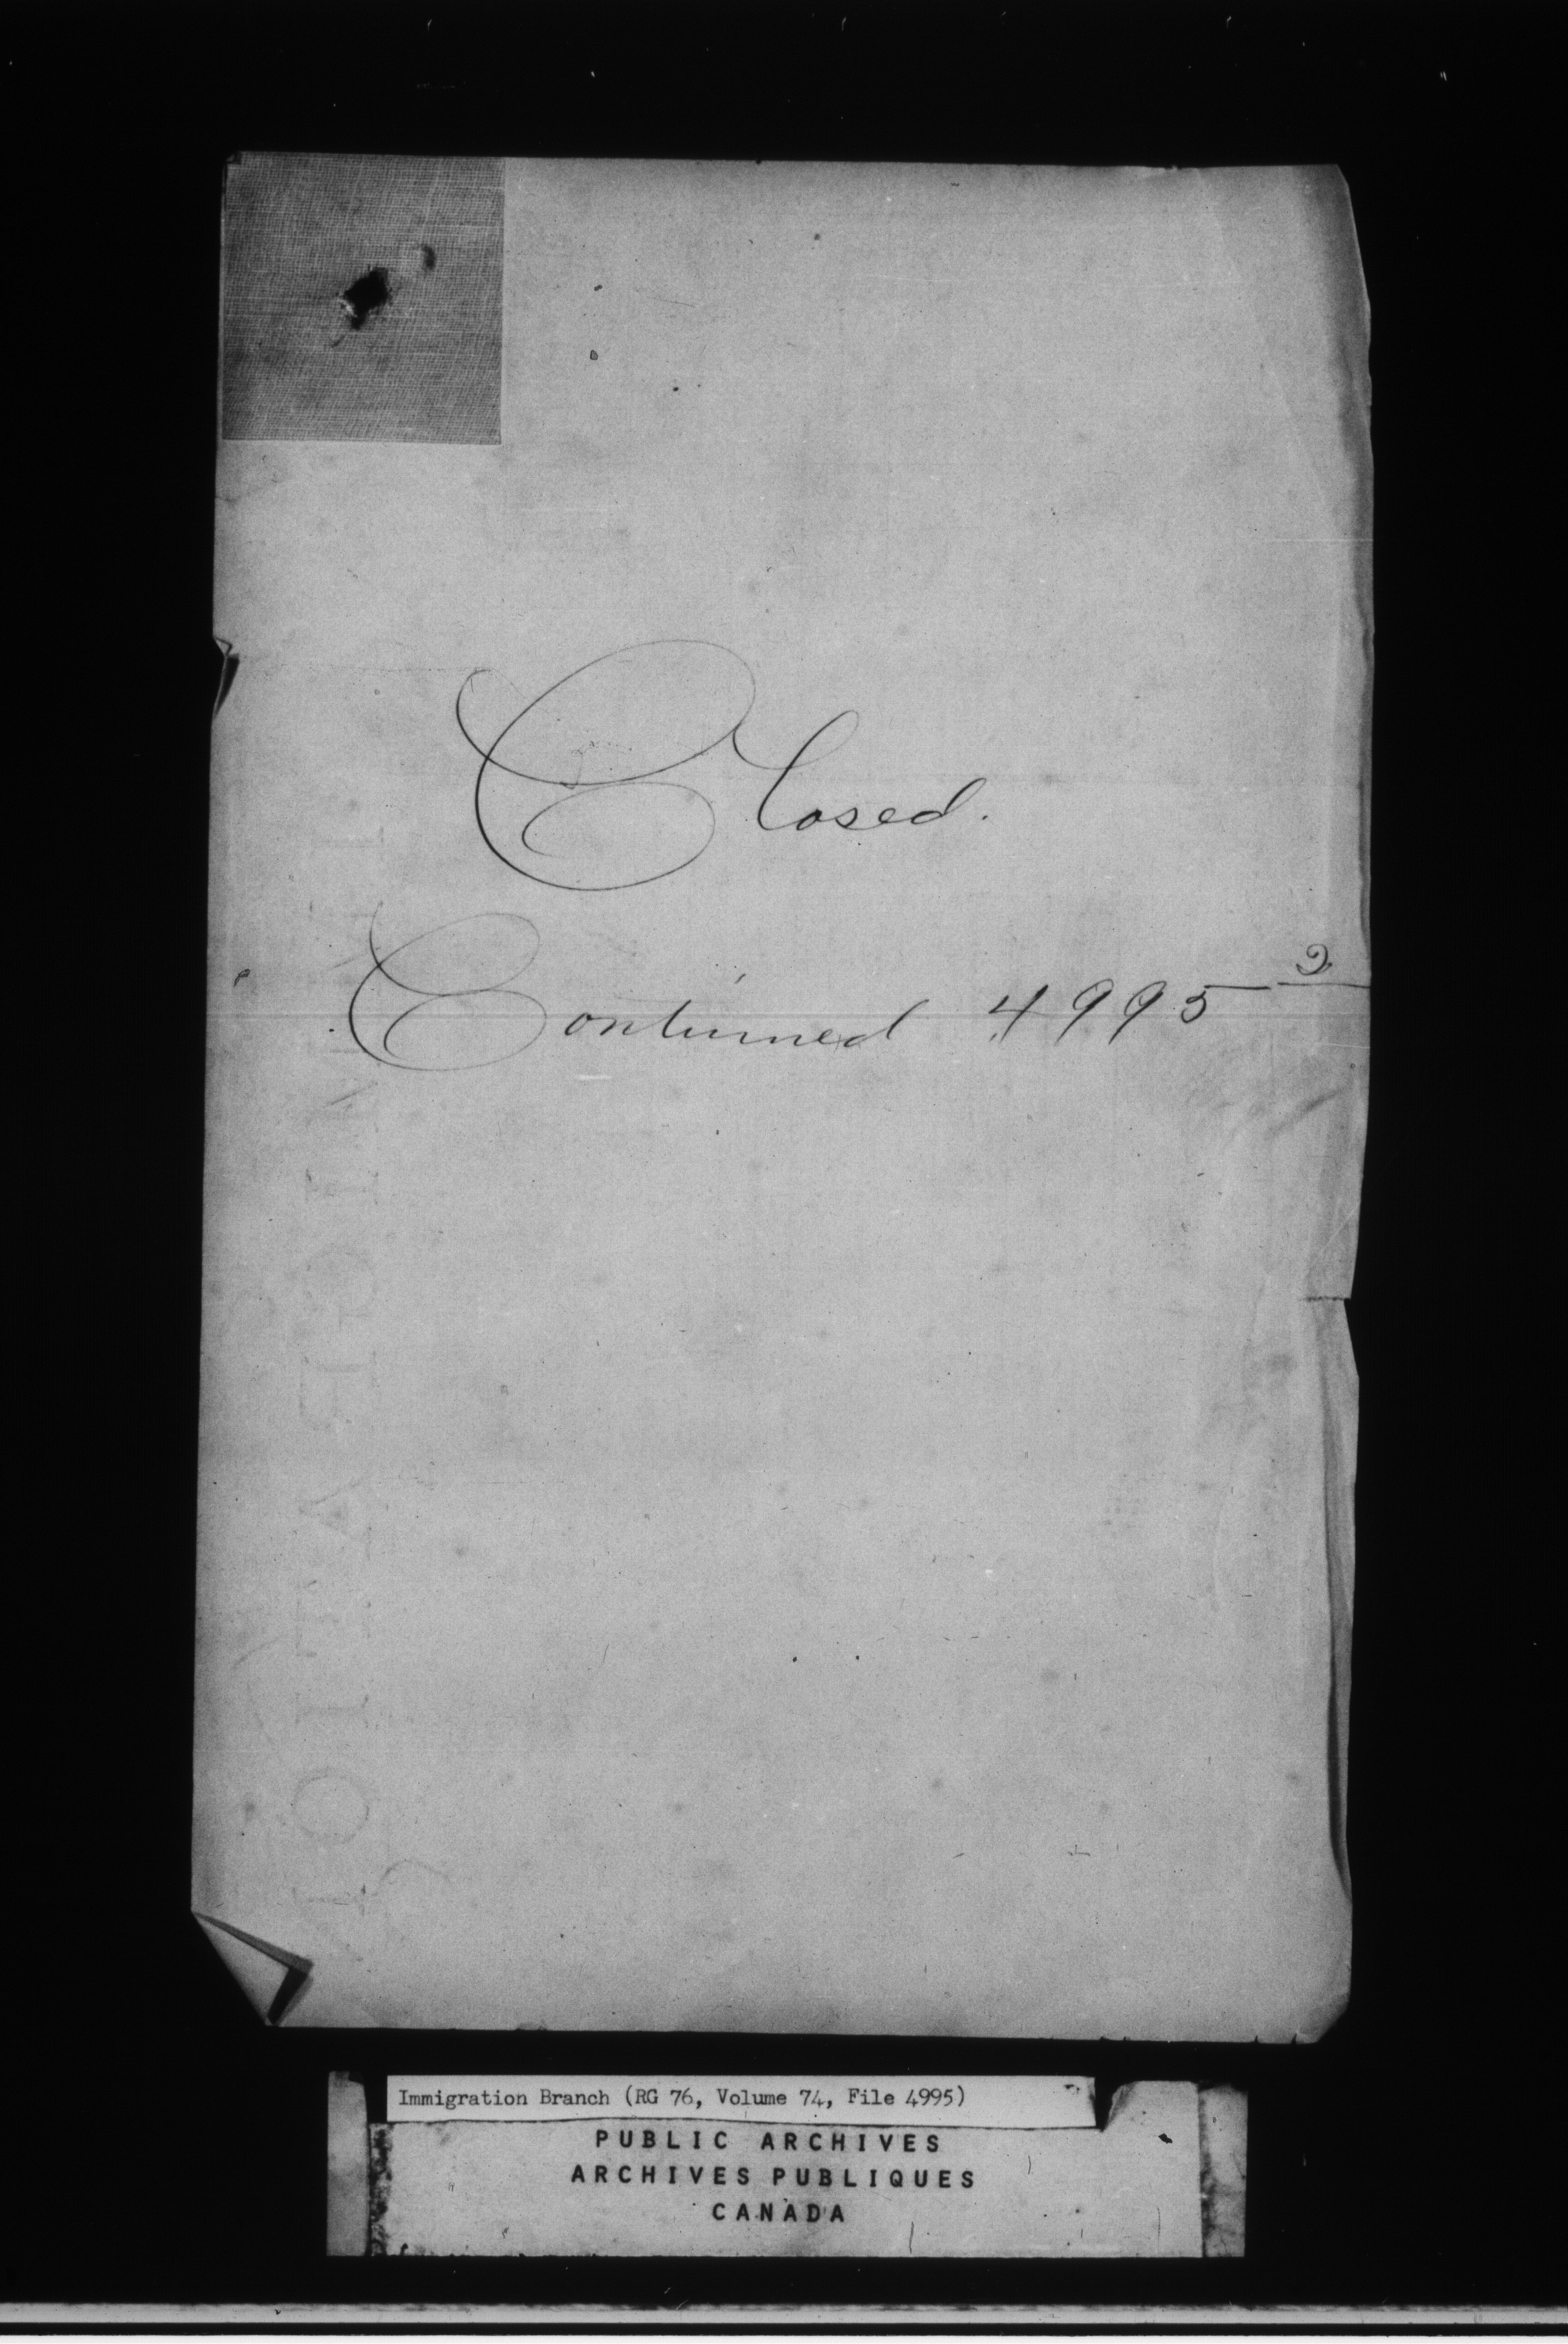 Closed.
Continued 4995 2
Immigration Branch (RG 76, Volume 74, File 4995)
PUBLIC ARCHIVES
ARCHIVES PUBLIQUES
CANADA